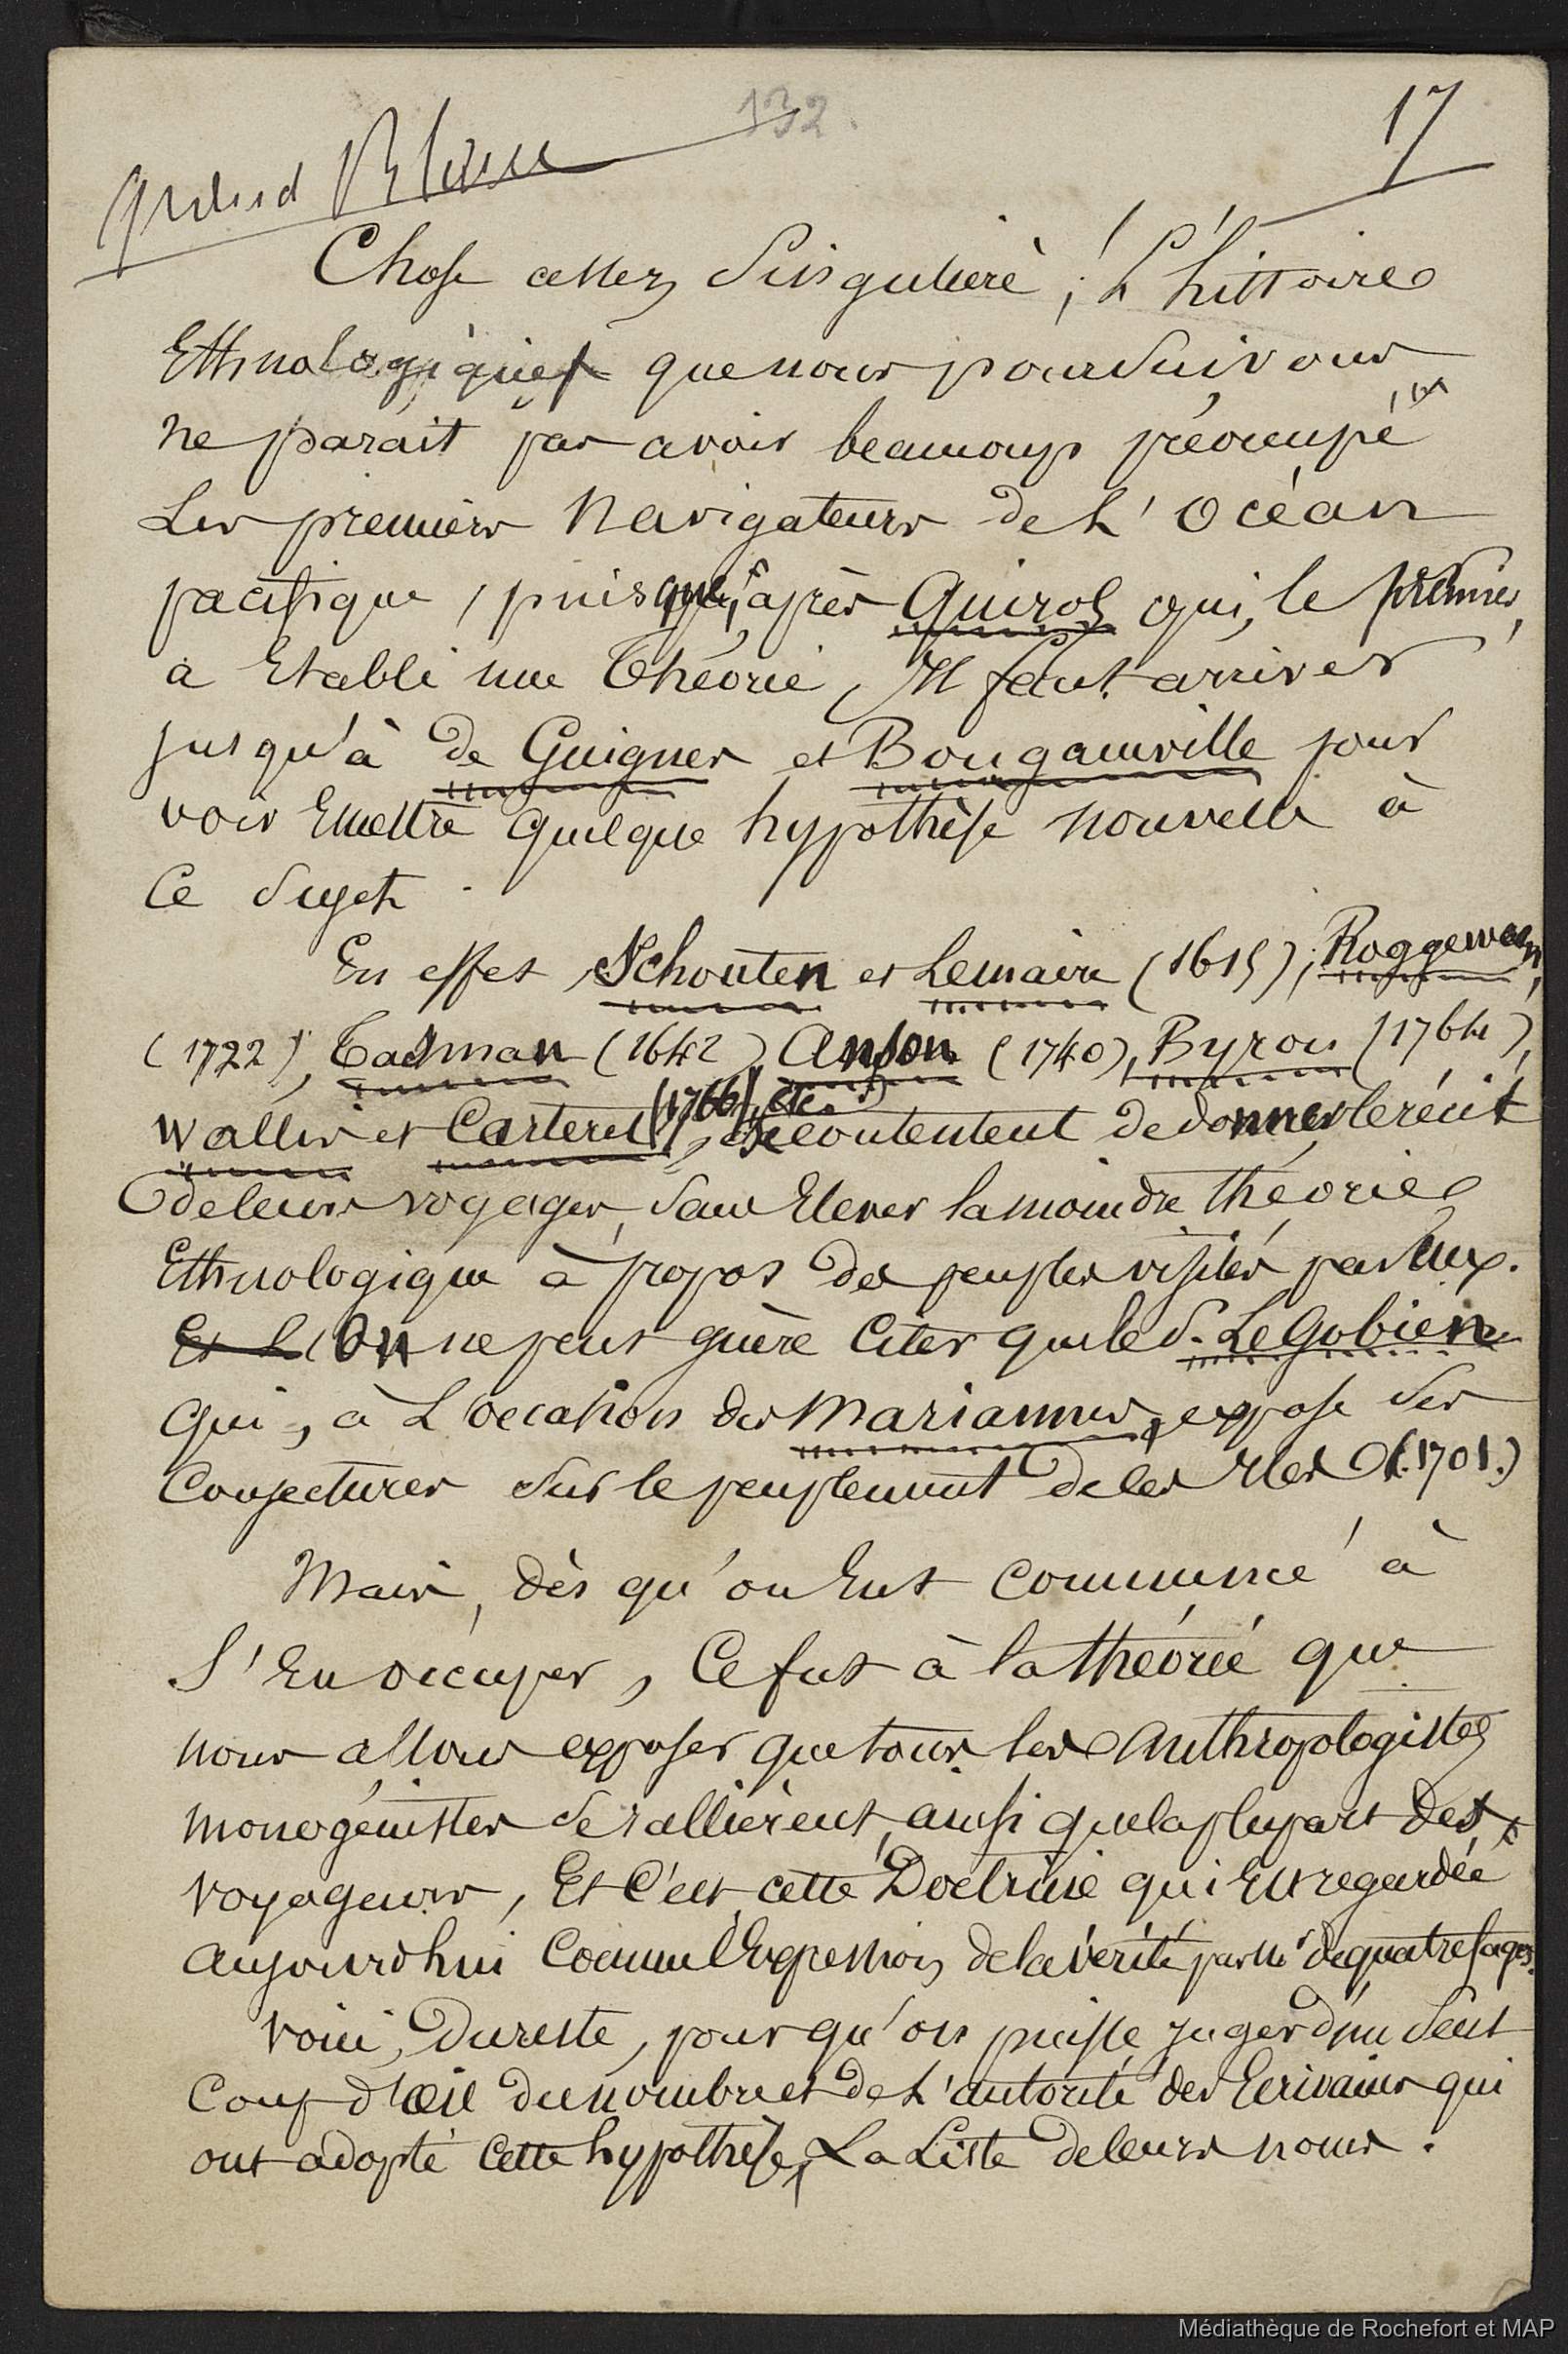 132.
17
Grand Blanc
Chose assez singulière, l'histoire
Ethnologique que nous poursuivons
ne paraît pas avoir beaucoup préocupé
Les premiers Navigateurs de L'Océan
pacifique, puisque, après Quiros qui, le premier,
a Etabli une théorie, Il faut arriver
jusqu'à de Guignes et Bougainville pour
voir Emettre quelque hypothèse nouvelle à
Ce sujet.
En effet Schouten et Lemaire (1615), Roggeween,
(1722), Tasman (1642), Anson (1740), Byron (1764),
Wallis et Carteret (1766), etc. se contentent de donner le récit
de leurs voyages, sans Elever la moindre théorie
Ethnologique à propos des peuples visités par Eux.
Et L On ne peut guère Citer que le P. Le Gobien
qui, à L'occasion des Mariannes, expose ses
Conjectures sur le peuplement de ces Iles (1701.)
Mais, dès qu'on Eut commencé à
S'En occuper, Ce fut à la théorie que
nous allons exposer que tous les Anthropologistes
monogénistes se rallièrent, ainsi que la plupart des
voyageurs, Et C'est cette Doctrine qui Est regardée
aujourd'hui Comme l'Expression de la vérité par Mr de quatrefages.
Voici, Dureste, pour qu'on puisse juger d'un seul
Coup d'œil du nombre et de L'autorité des Ecrivains qui
ont adopté Cette hypothèse, La Liste de leurs noms.
Médiathèque de Rochefort et MAP